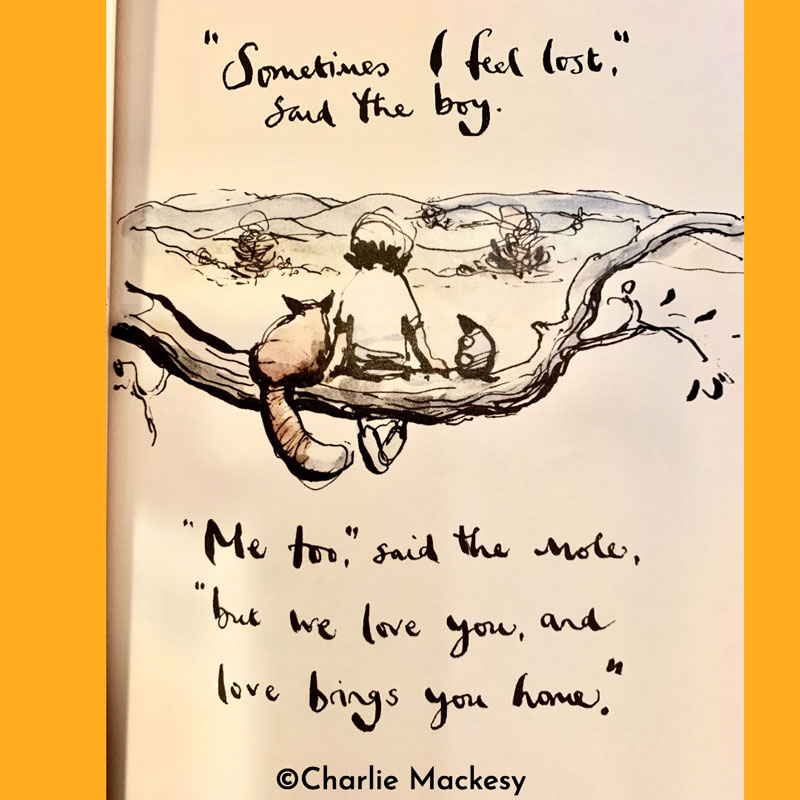 "Sometimes I feel lost,"
said the boy.
"Me too," said the mole,
"but we love you, and
love brings you home."
©Charlie Mackesy